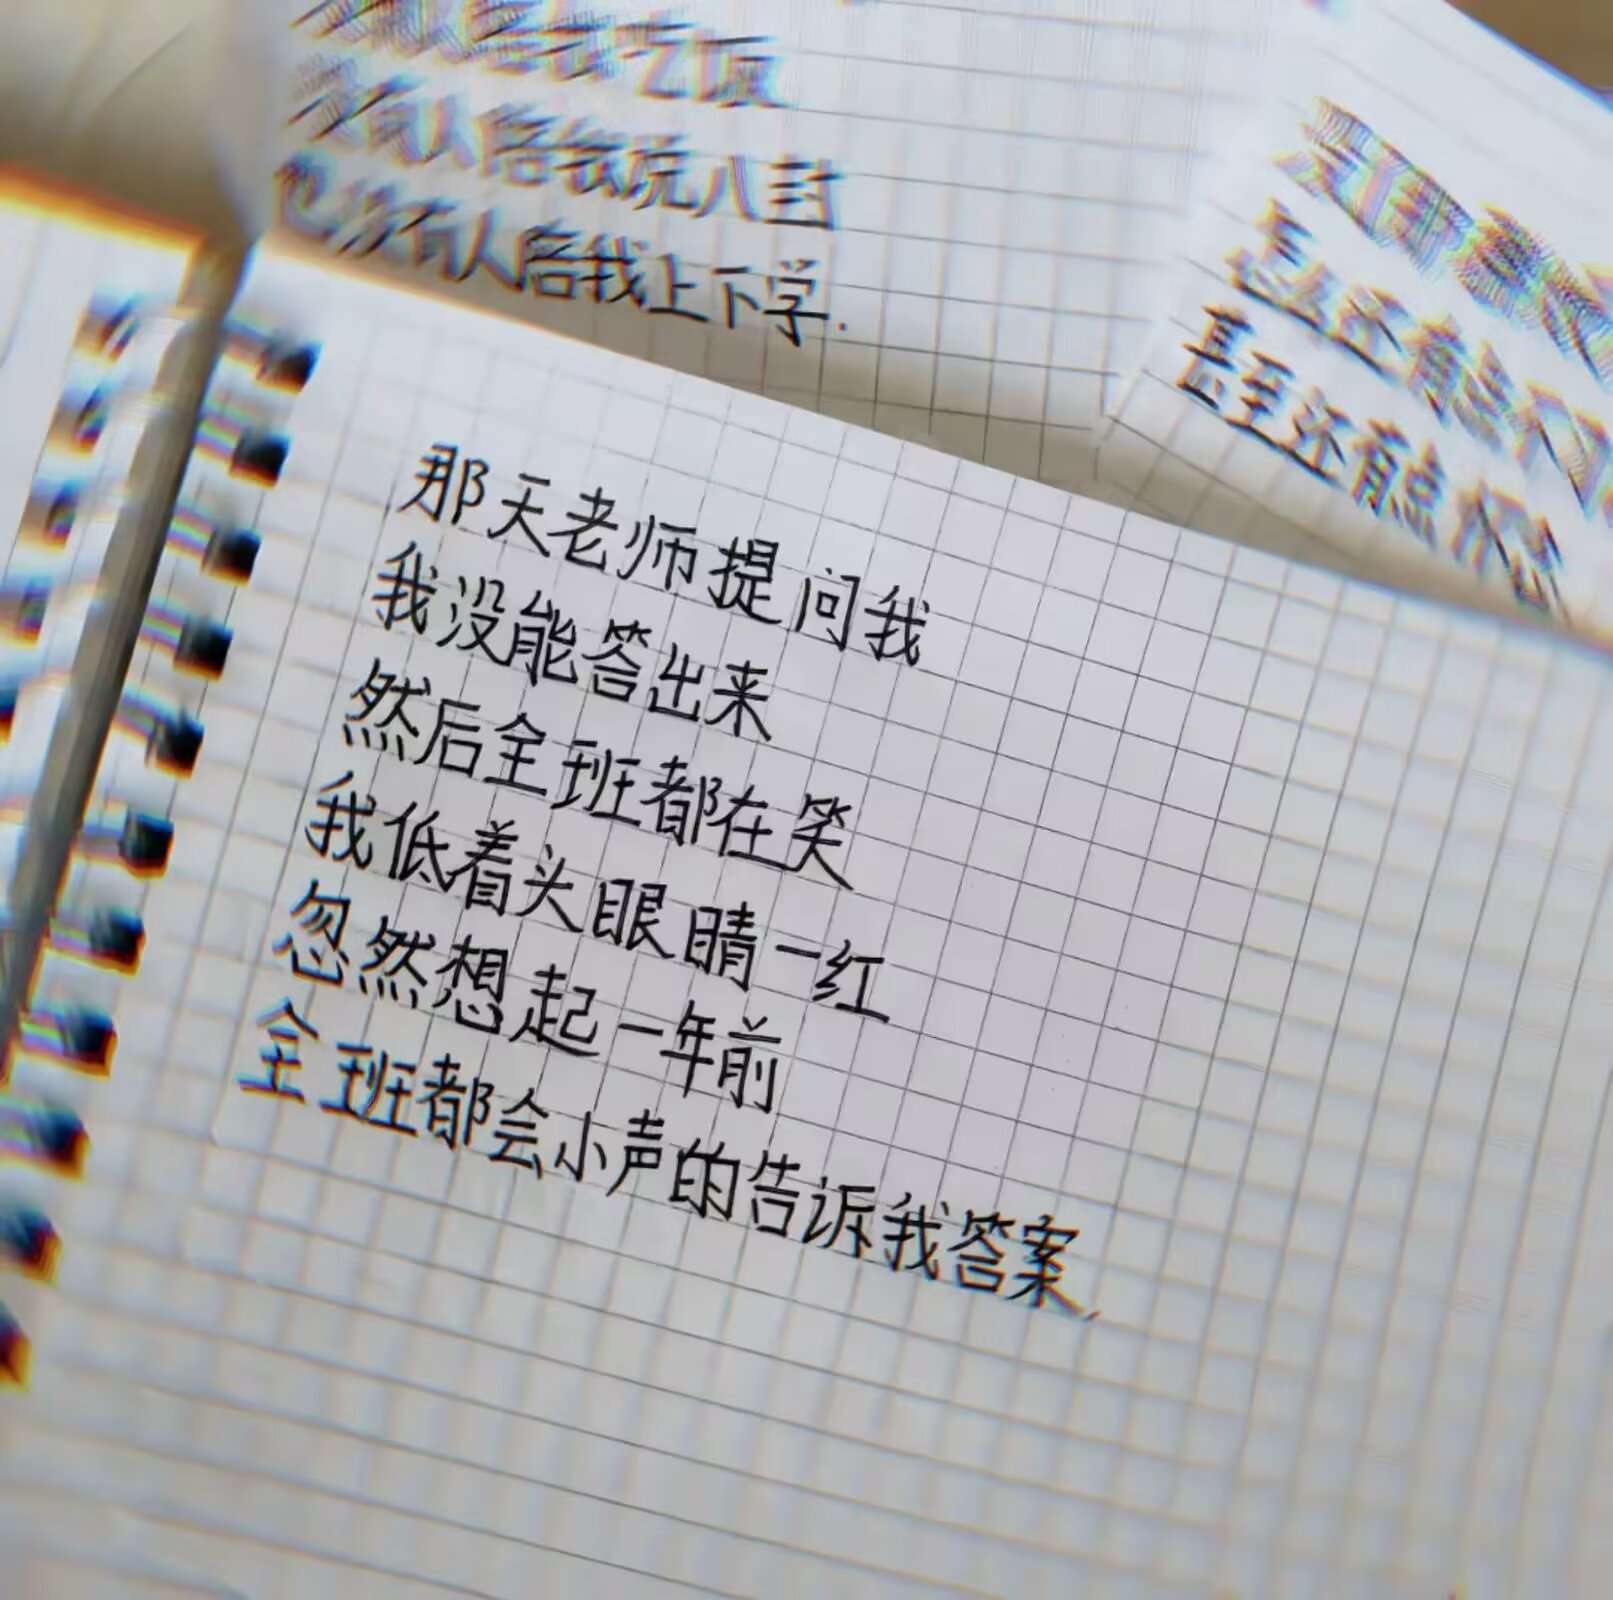 没有人陪我说八卦
也没有人陪我上下学.
甚至还有点
那天老师提问我
我没能答出来
然后全班都在笑
我低着头眼睛一红
忽然想起一年前
全班都会小声的告诉我答案.